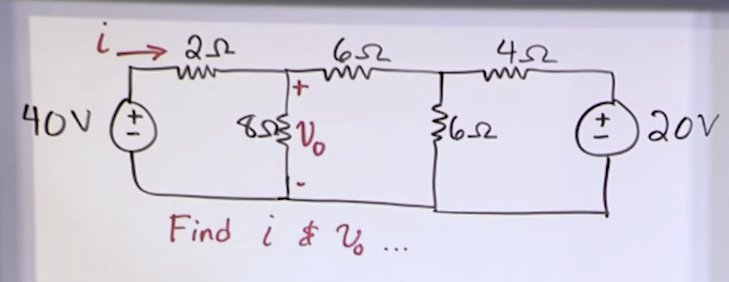 i → 2Ω 6Ω 4Ω
+
40V + - 8Ω V₀ 6Ω + - 20V
-
Find i & V₀ ...